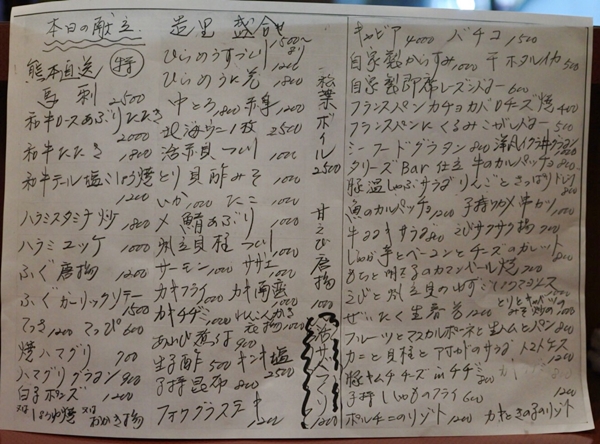 本日の献立
熊本直送 特
馬刺 2500
和牛ロースあぶりたたき 2000
和牛たたき 1800
和牛テール塩こしょう焼 1200
ハラミスタミナ炒 1800
ハラミユッケ 1000
ふぐ唐揚 1200
ふぐガーリックソテー 1500
てっさ 1200 てっぴ 600
焼ハマグリ 700
ハマグリグラタン 900
白子ポンズ 1200
造里 盛合せ 1500〜より
ひらめうすづくり 1200
ひらめうに巻 1800
中とろ 1800 赤身 1200
北海ウニ1枚 2500
活赤貝つくり 1000
とり貝酢みそ 1000
いか 1000 たこ 1000
〆鯖あぶり 1000
帆立貝柱つくり 1000
サーモン 1000 サザエ 1000
カキフライ 1000
カキチヂミ 1000
あわび煮つけ 900
生子酢 500 キンキ塩 2500
子持昆布 800
フォアグラステーキ 1200
松葉ボイル 2500
甘えび唐揚 1000
キャビア 4000 バチコ 1500
自家製からすみ 1000 干ホタルイカ 500
自家製即席レーズンバター 600
フランスパンカチョカバロチーズ焼 400
フランスパンにくるみこがしバター 500
シーフードグラタン 800
チリーズBar仕立 牛のカルパッチョ 800
豚温しゃぶサラダりんごとさっぱり
魚のカルパッチョ 1200
牛サラダ 800 えびサクサク揚 700
じゃが芋とベーコンとチーズのガレット
もちと明太子のカマンベール焼 700
ぜいたく生春巻 1200
フルーツとマスカルポーネと生ハムとパン 800
カニと貝柱とアボカドのサラダ トマトチーズ
豚キムチチーズinチヂミ 800
子持ししゃものフライ 600
ポルチーニのリゾット 1200 カキときの子のリゾット 1200